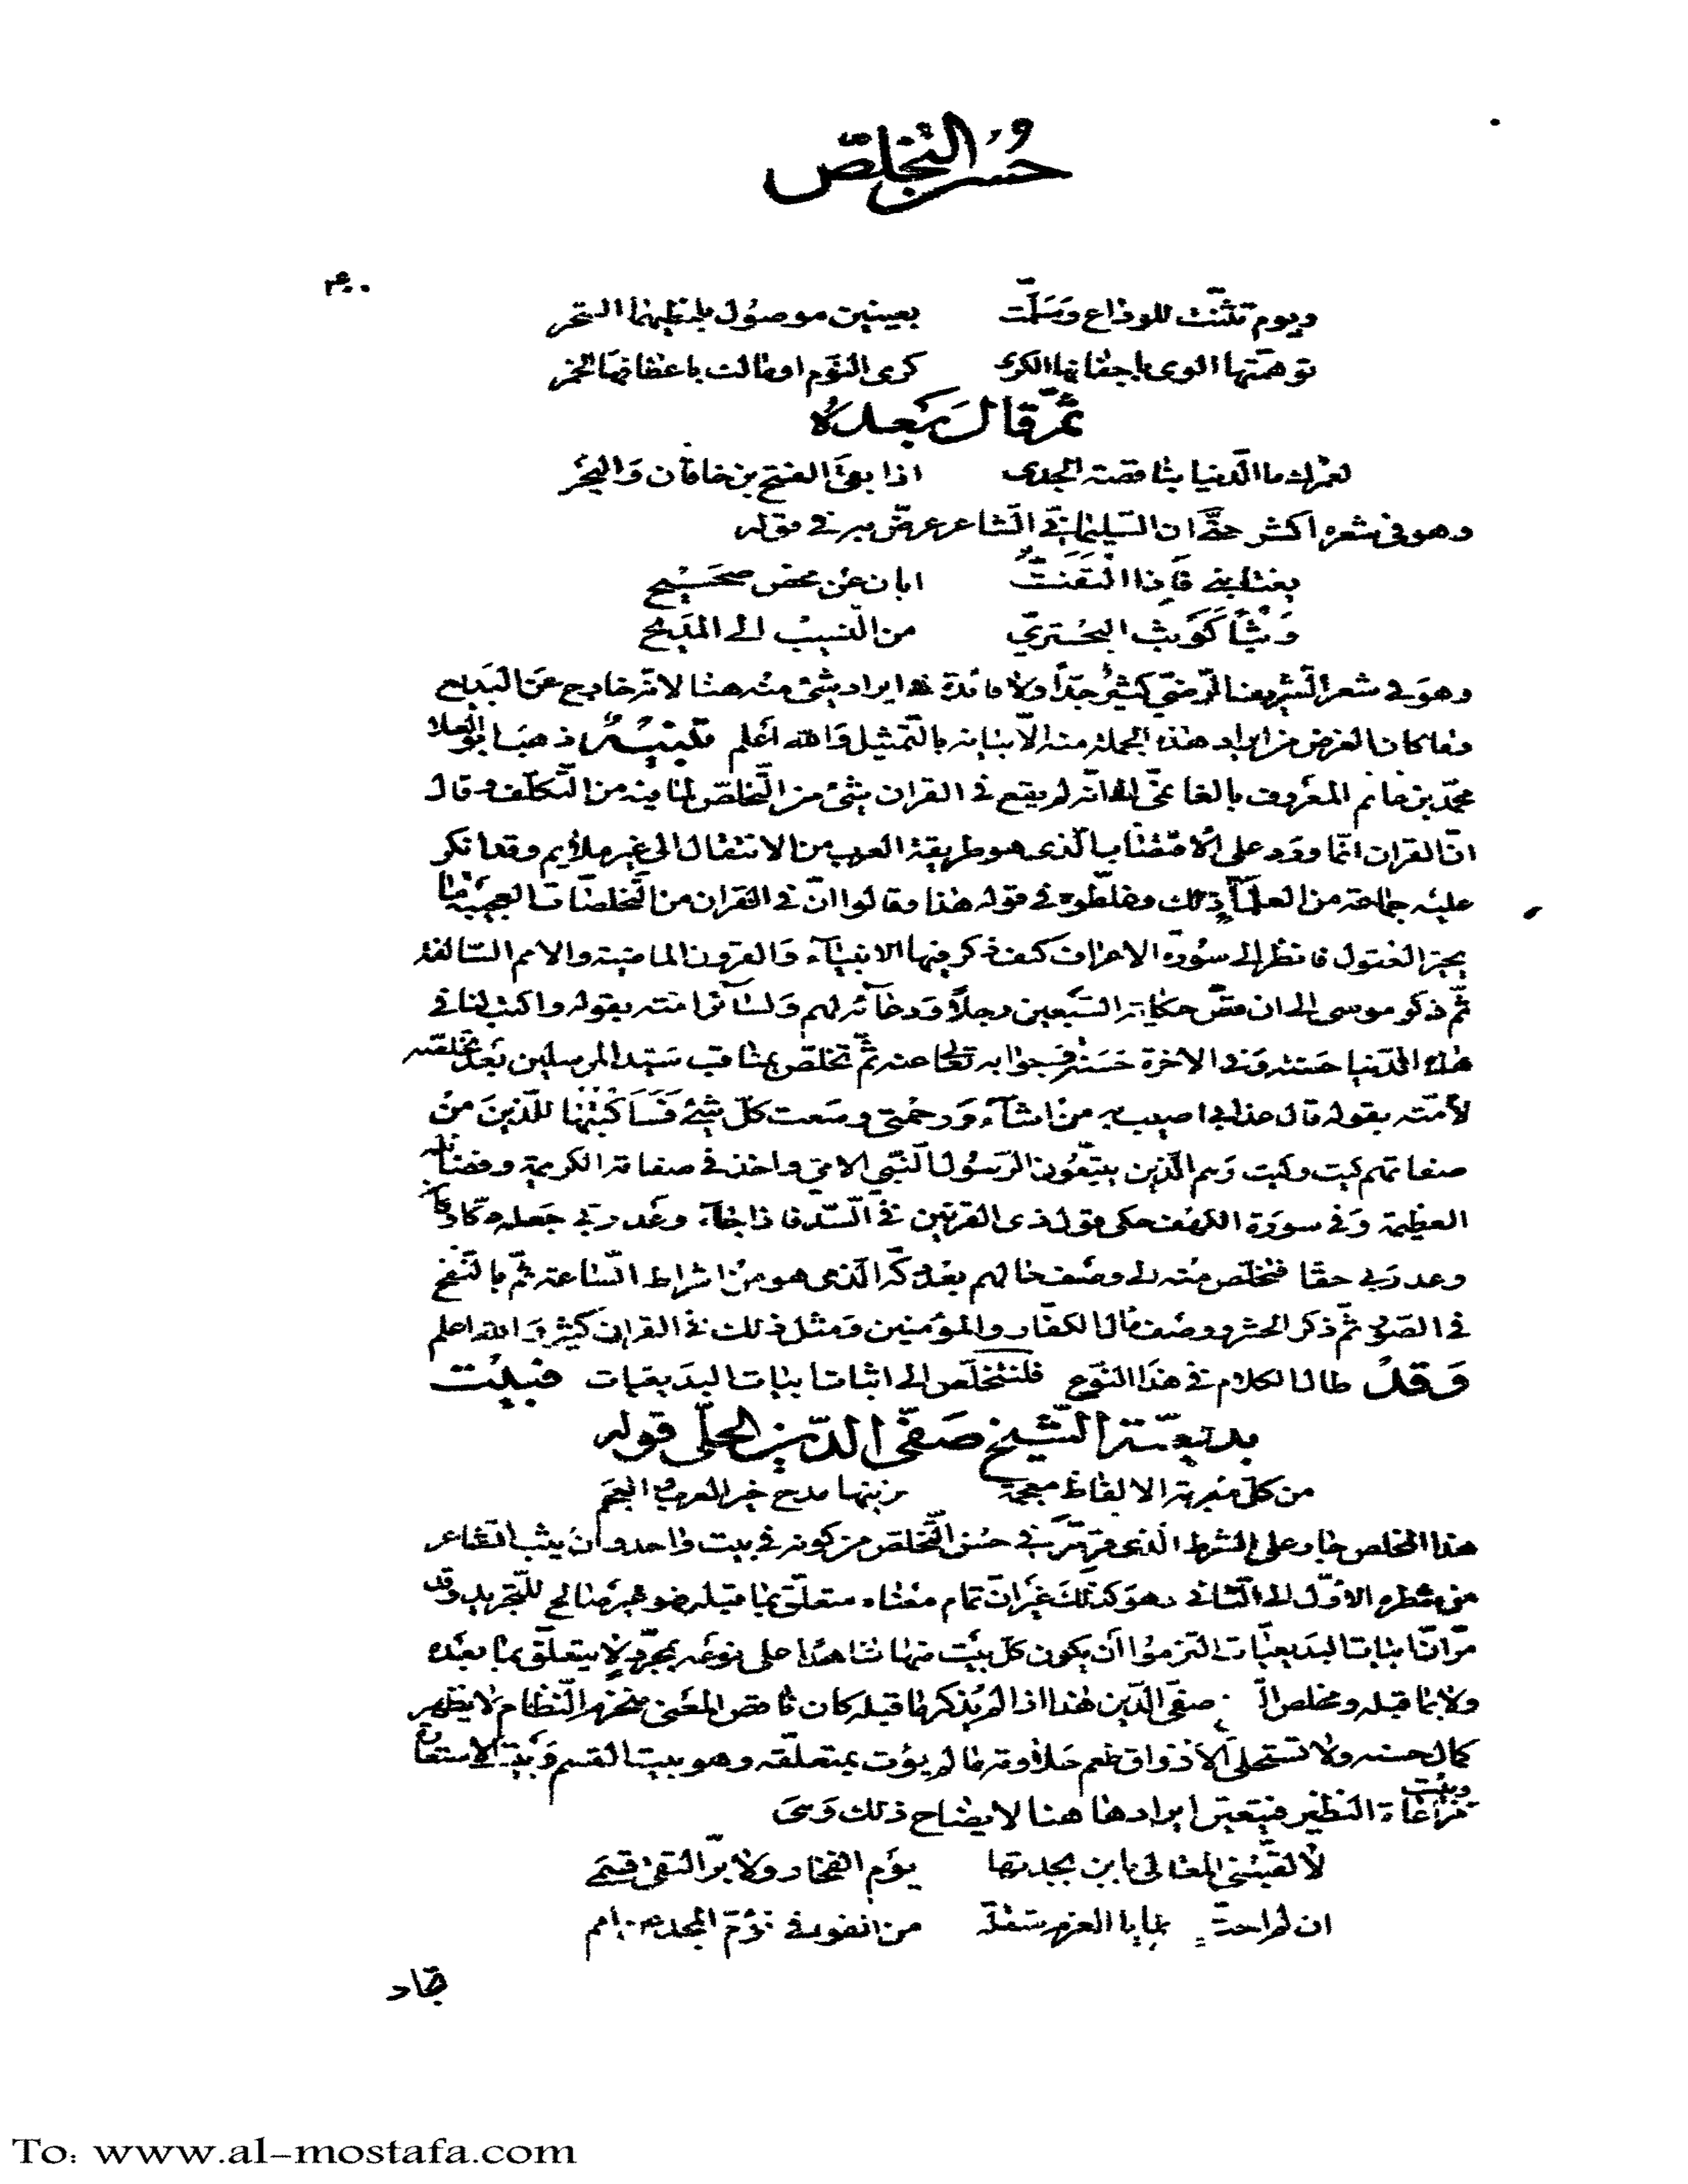 حُسن التخلّص
ويوم تثنّت للوداع وَسَلّمت بعينين موصُول بلحظهما السّحر
توهمّتها الوى باجفانها الكرى كرى النّوم او مالت باعطافها الخمر
ثمّ قال بَعدهُ
لعمرك ما الدّنيا بناقصة الجدى اذا بقى الفتح بن خاقان وَالبحر
وهو فى شعره اكثر حتّى ان السّليمانى الشاعر عرّض به في قوله
يغتابنى فَاِذا التَفَتّ ابان عن محض صحَيح
وَثباً كَوَثب البحُتريّ من النّسيب الى المَديح
وهوَ في شعر الشّريف الرّضيّ كثيرُ جدّاً ولا فائدة في ايراد شئ منه هنا لانّه خارج عَن البَديع
وما كان الغرض من ايراد هذه الجملة منه الّا بيانه بالتّمثيل وَالله أعلم تنبيهٌ ذهبَ ابو العلا
محمّد بن غانم المعرُوف بالغانمّى الى انّه لم يقع في القران شئ من التّخلّص لما فيه من التّكلّف وقال
انّ القران انّما ورد على الاقتضاب الّذى هو طريقة العرب من الانتقال الى غير ملايم وقد انكر
عليه جماعة من العلمآء ذلك وغلّطوه فى قوله هذا وقالوا انّ في القران من التّخلّصات العجيبَة ما
يحيّر العقول فانظر الى سوُرة الاعراف كيف ذكر فيها الانبيآء وَالقرون الماضية والامم السّالفة
ثمّ ذكر موسى الى ان قصّ حكاية السّبعين رجلاً وَدعآئه لهم وَلسآئر امّته بقوله واكتب لنا فى
هذه الدّنيا حسَنة وَفى الاخرة حَسَنة وَجوابه تعالى عنه ثمّ تخلّص بمناقب سَيّد المرسلين بَعد تخلّصه
لأمّته بقوله قال عذابي اصيب به من اشآء وَرحمتى وسعت كلّ شئ فَسَاَكتُبُها للّذينَ مِنْ
صفاتهم كيت وكيت وَهم الّذين يتّبعُون الرّسُول النّبي الامّي واخذ في صفاته الكريمة وفضائله
العظيمة وَفى سورة الكهف حكى قول ذى القرنين فى السّد فاذا جآء وَعْد ربي جَعله دكّا وكان
وعد رَبي حقّا فتخلّص منه الى وصف حالهم بعْد دكّه الّذى هو من اشراط السّاعة ثمّ بالنّفخ
في الصّور ثمّ ذكر الحشر ووصْف مآل الكفّار والمؤمنين وَمثل ذلك في القران كثير وَالله اعلم
وَقدْ طال الكلام في هذا النّوع فلنتخلّص الى اثبات ابيات البديعيات فبيْت
بديعيّة الشّيخ صَفّى الدّين الحلّى قوله
من كلّ معربة الالفاظ معجمة يزينها مدح خير العرب والعجم
هذا المخلص جارٍ على الشرط الّذى قرّرته في حسُن التّخلّص من كونه في بيت واحد وان يثب الشاعر
من شطره الاوّل الى الثّاني وهوَ كذلكَ غيَر انّ تمام معناه متعلّق بما قبله فهو غير صالح للتّجريد وقد
مرّ انّ ابيات البديعيّات التزموُا أن يكون كلّ بيْت منها شاهدا على نوعه بمجرّده لا يتعلّق بما بعْده
ولا بما قبله ومخلص ال صفّى الدّين هذا اذا لم يُذكر ما قبله كان ناقص المعْنى منخرم النّظام لا يظهر
كمال حسنه ولا تستحلى الاذواق طعم حَلاوته ما لم يؤت بمتعلّقه وهو بيت القسم وَبيْت الاستعارة
وبيْت مراعاة النّظير فيتعيّن ايرادها هنا لايضاح ذلك وَهىَ
لا لقّبتنى المعالى بابن بجدتها يوْم الفخار ولا برّ التقى قسَمى
ان لم احثّ مطايا العزم مثقلة من القوافى تؤمّ المجد من امم
تجاد
To: www.al-mostafa.com